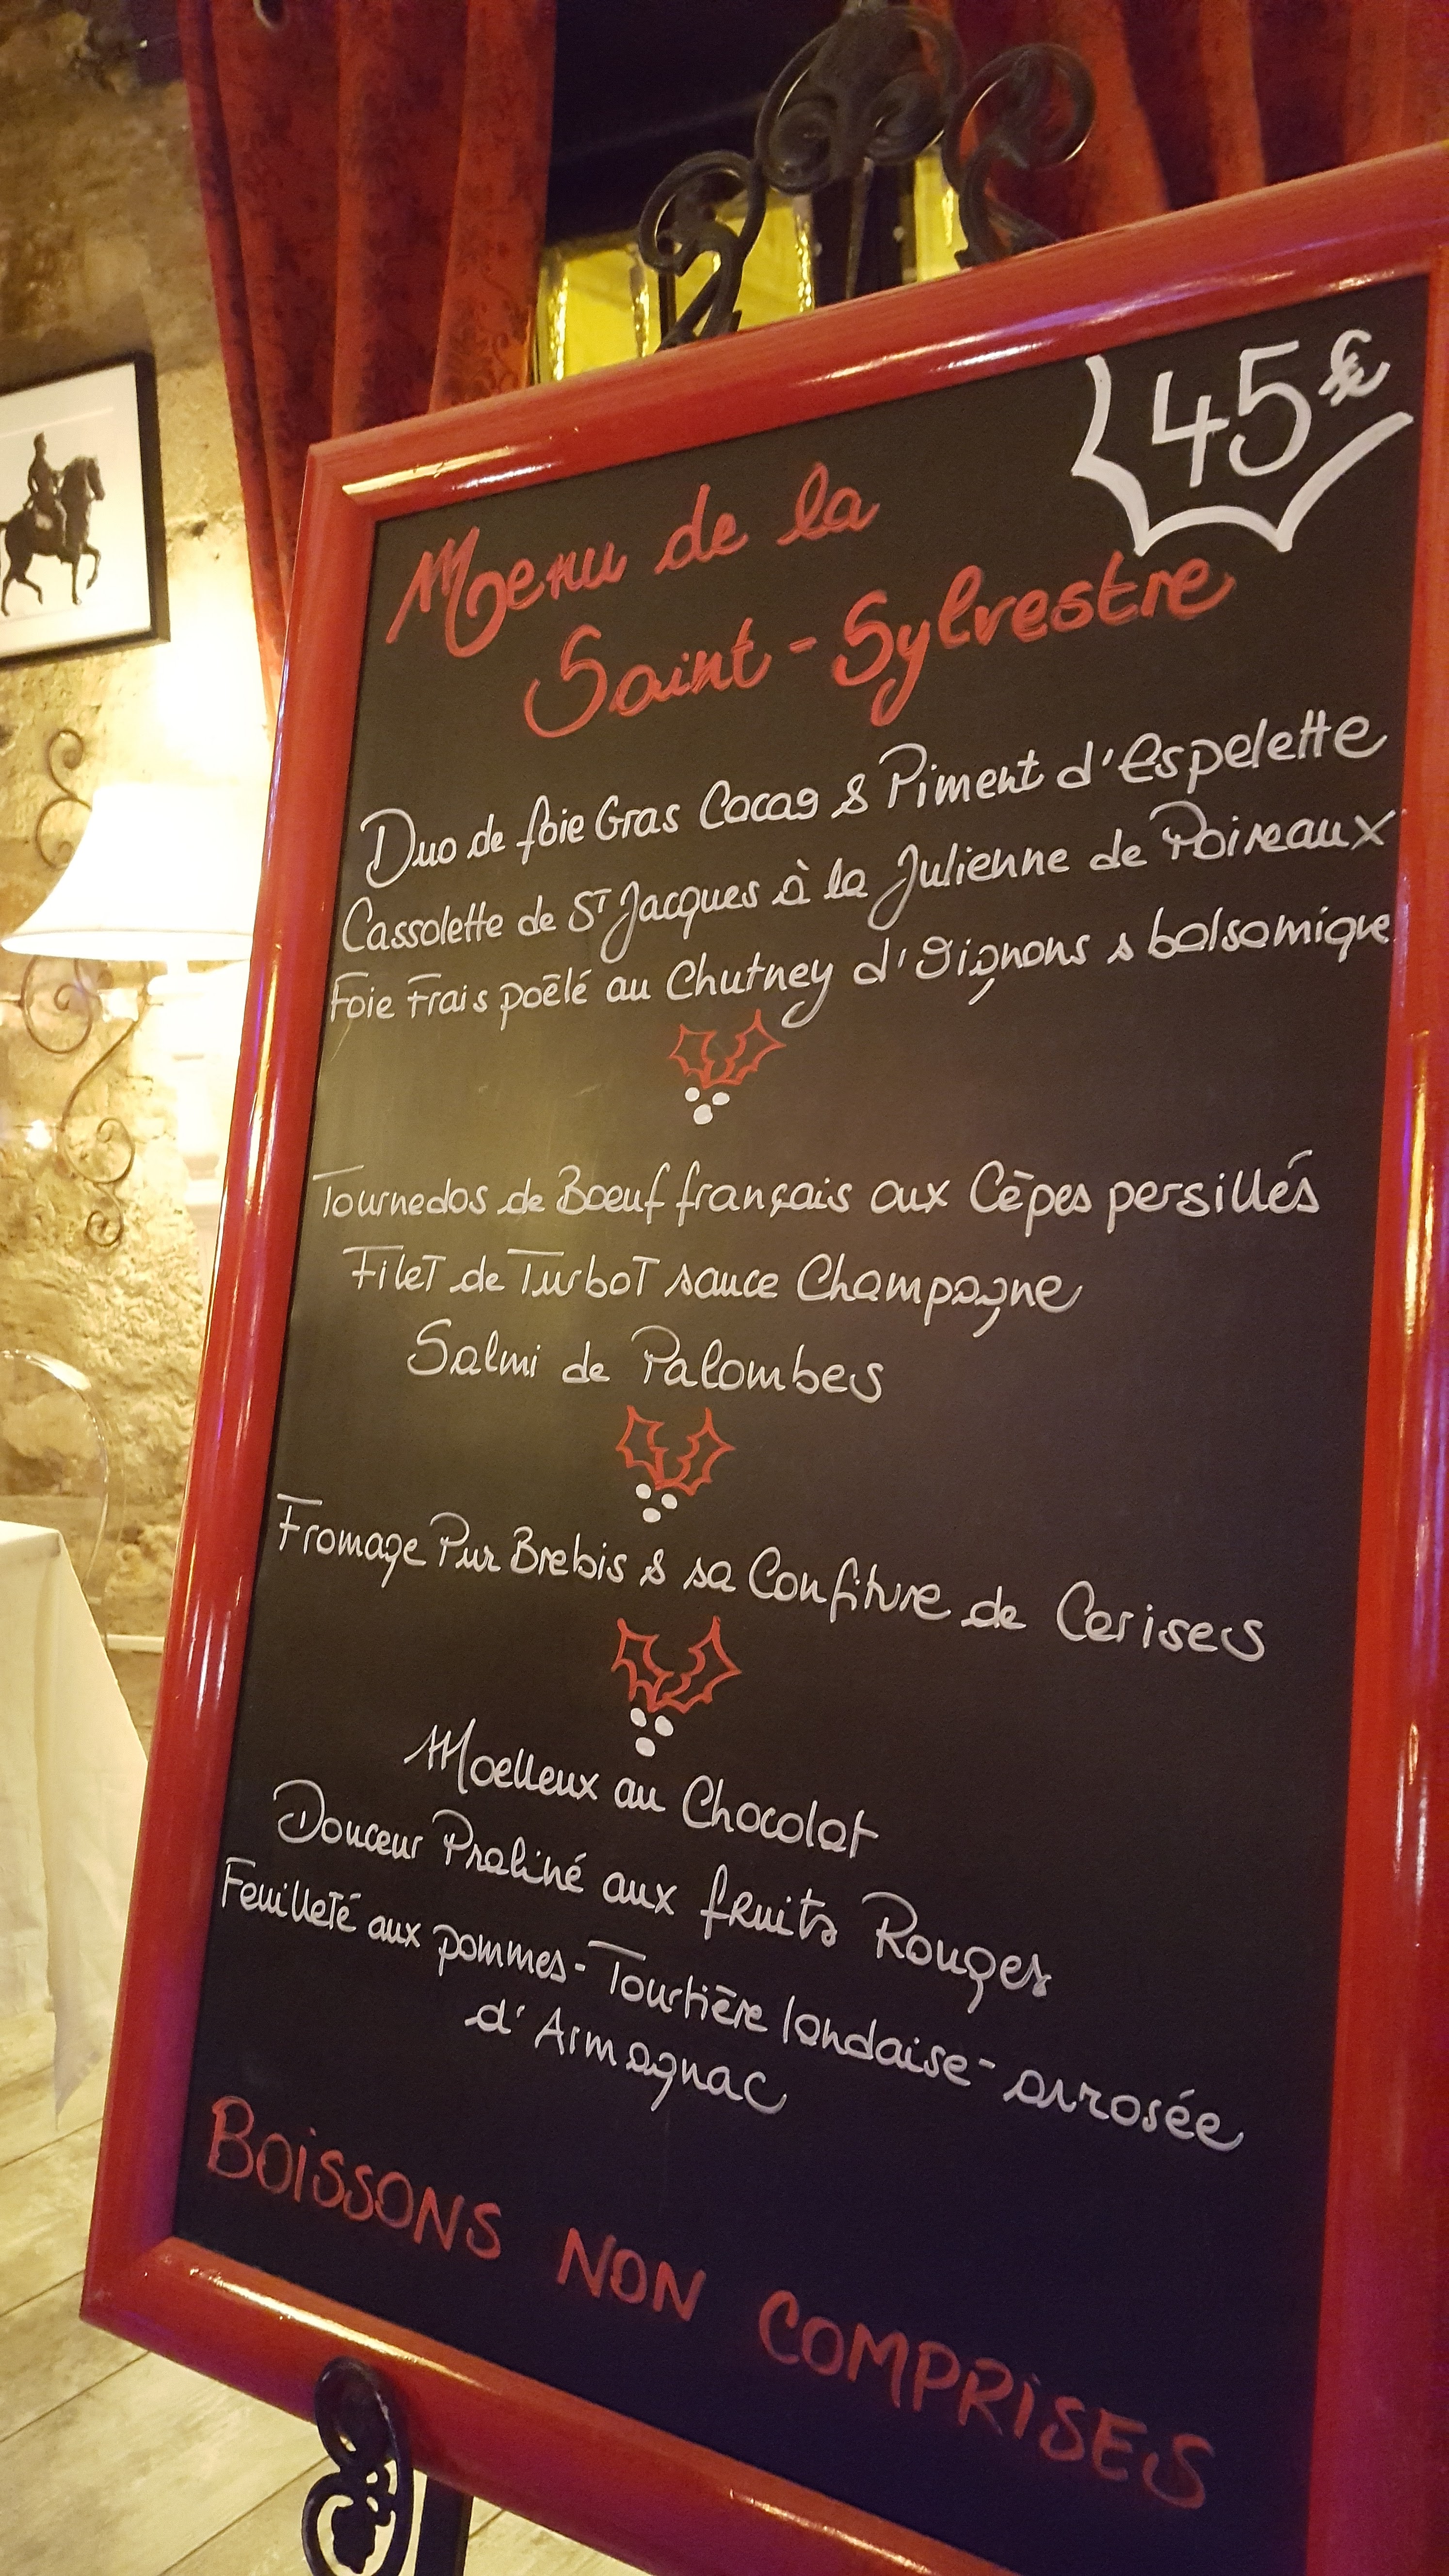 45€
Menu de la
Saint-Sylvestre
Duo de foie Gras Cacao & Piment d'Espelette
Cassolette de St Jacques à la Julienne de Poireaux
Foie Frais poêlé au Chutney d'Oignons & balsamique
Tournedos de Boeuf français aux Cèpes persillés
Filet de Turbot sauce Champagne
Salmi de Palombes
Fromage Pur Brebis & sa Confiture de Cerises
Moelleux au Chocolat
Douceur Praliné aux fruits Rouges
Feuilleté aux pommes - Tourtière landaise - arrosée
d'Armagnac
BOISSONS NON COMPRISES